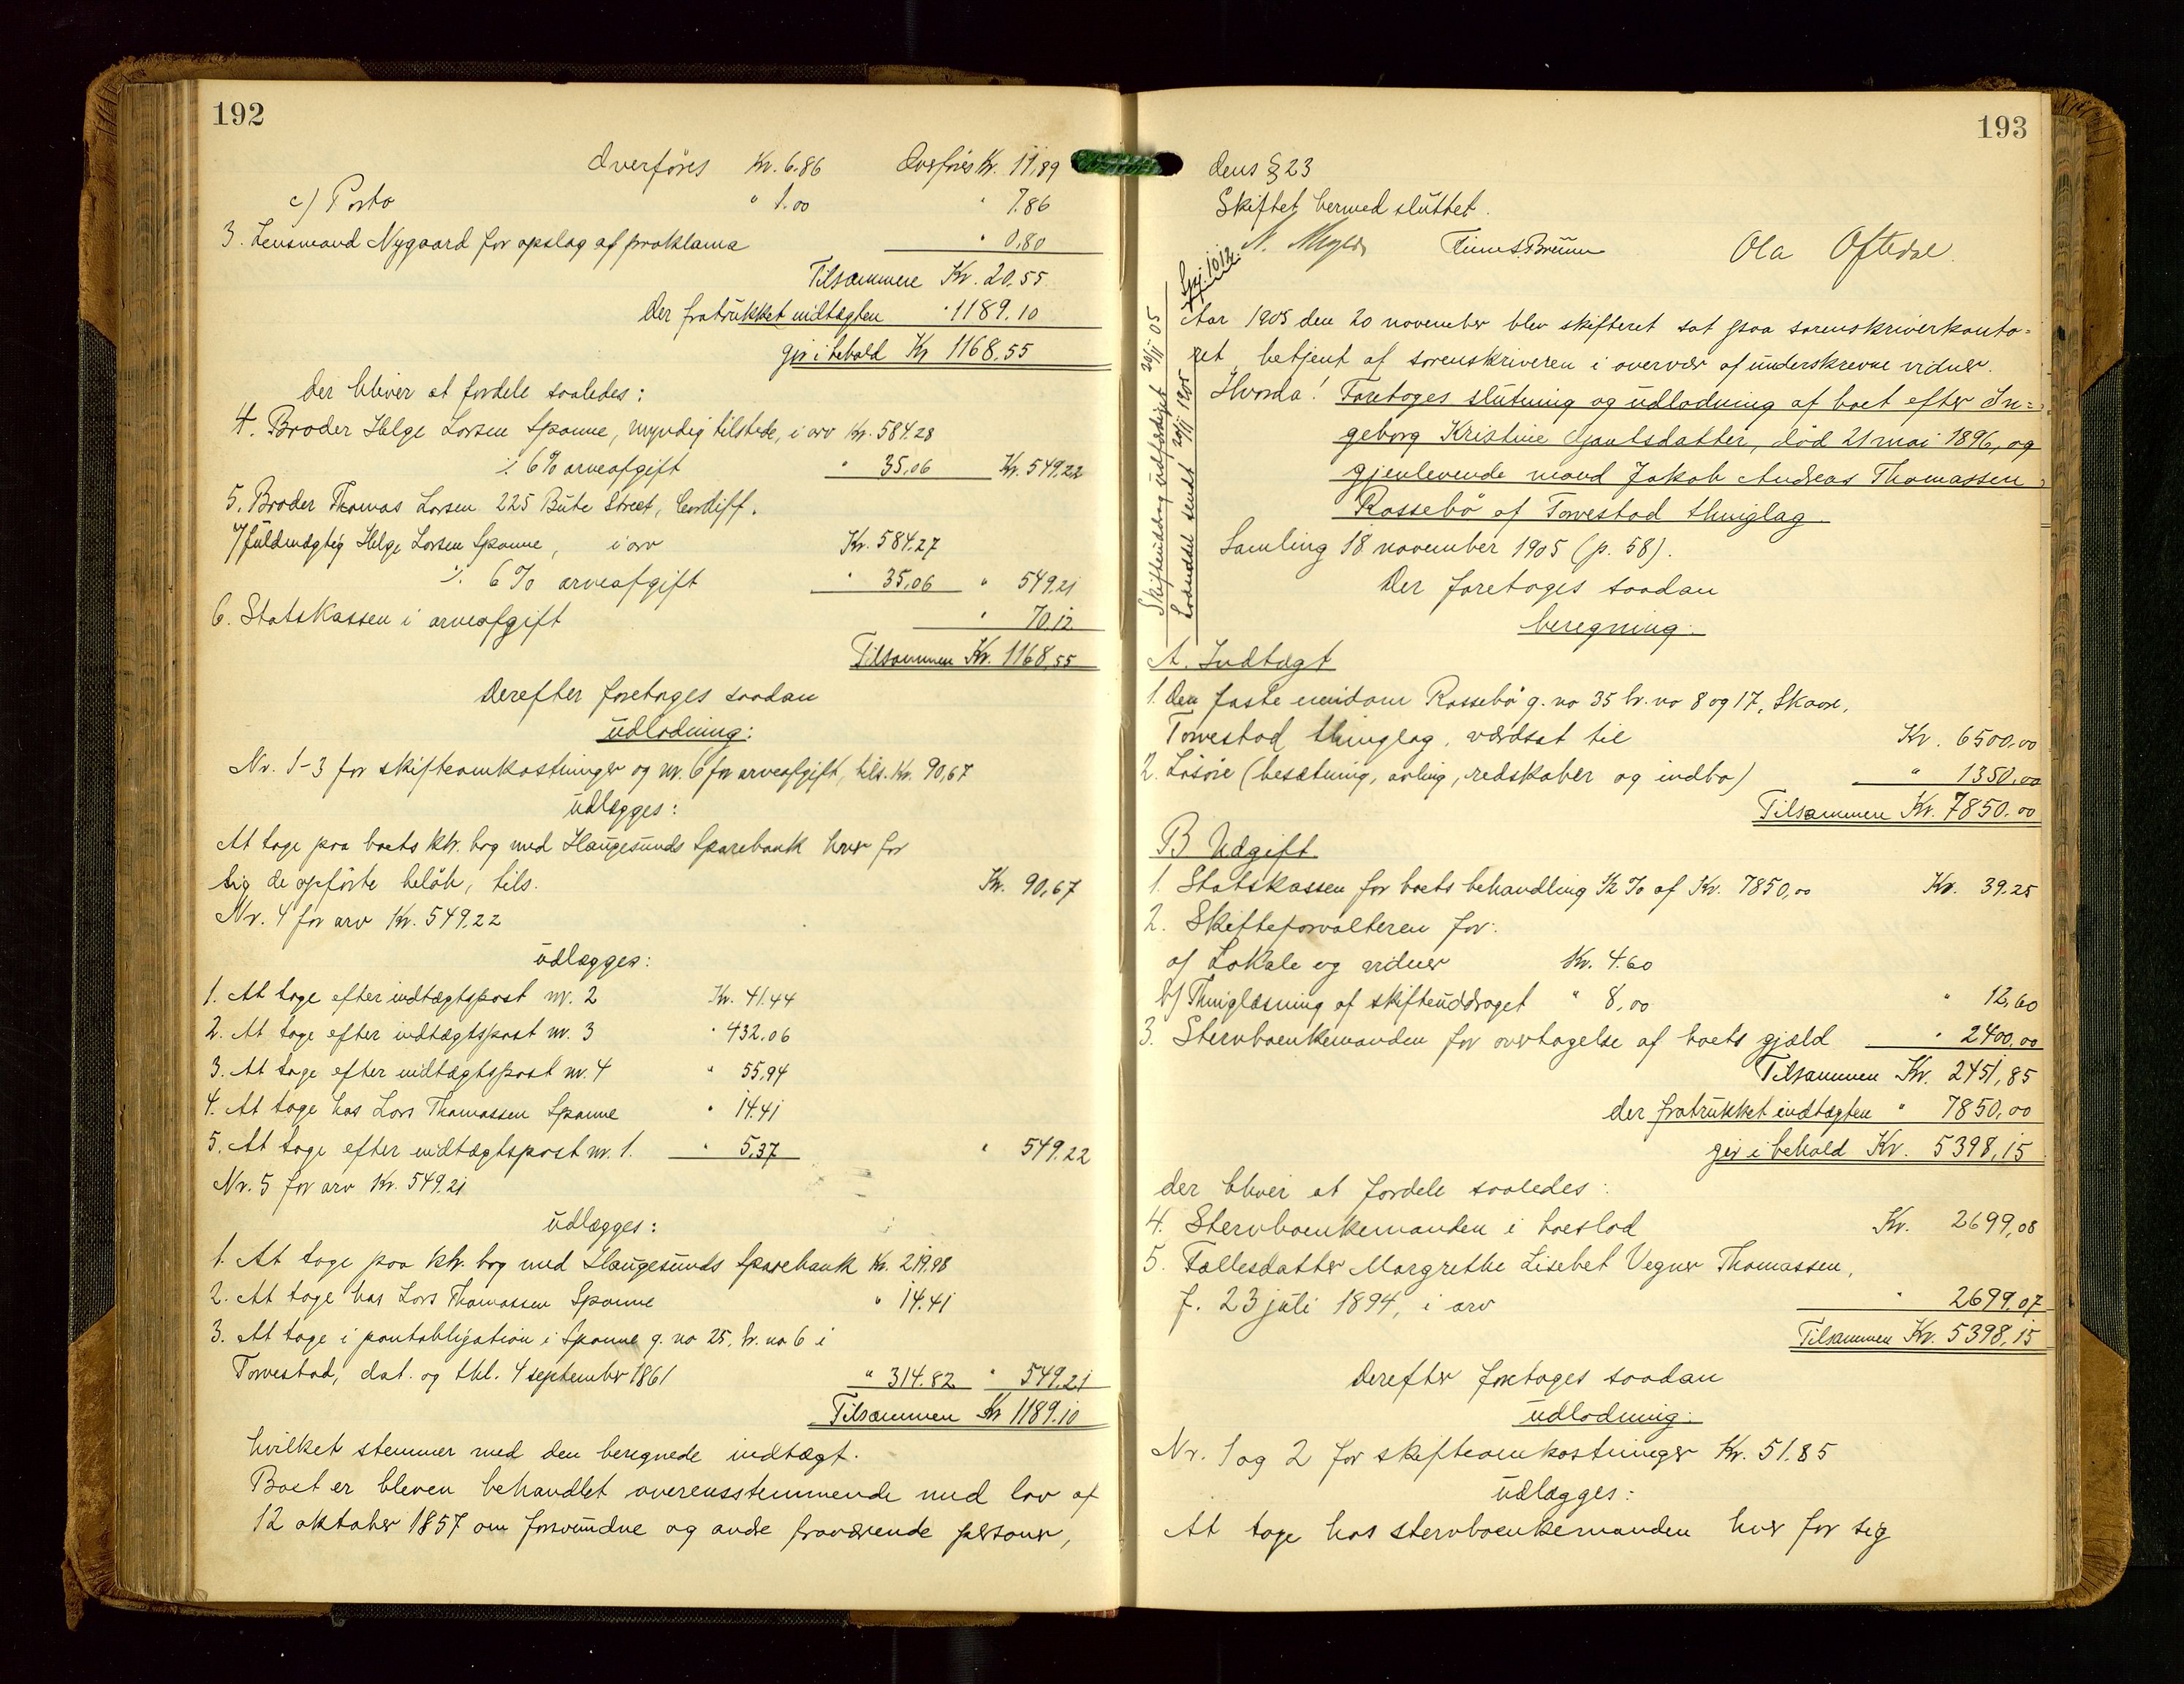 192
Overføres Kr. 6.86 Overføres Kr. 11,89
c) Porto " 1.00 " 7.86
3. Lensmand Nygaard for opslag af proklama " 0,80
Tilsammen Kr. 20,55
der fratrukket indtægten " 1189.10
gir i behold Kr 1168,55
der bliver at fordele saaledes:
4. Broder Helge Larsen Spanne, myndig tilstede, i arv Kr. 584.28
÷ 6% arveafgift " 35,06 Kr. 549,22
5. Broder Thomas Larsen 225 Bute Street, Cardiff.
v/ fuldmægtig Helge Larsen Spanne, i arv Kr. 584.27
÷ 6% arveafgift " 35,06 " 549,21
6. Statskassen i arveafgift " 70,12
Tilsammen Kr. 1168,55
Derefter foretages saadan
udlodning:
Nr. 1-3 for skifteomkostninger og nr. 6 for arveafgift, tils. Kr. 90,67
udlægges:
At tage paa boets ktr. bog med Haugesunds Sparebank hver for
sig de opførte beløb, tils. Kr. 90,67
Nr. 4 for arv Kr. 549,22
udlægges:
1. At tage efter indtægtspost nr. 2 Kr. 41.44
2. At tage efter indtægtspost nr. 3 " 432.06
3. At tage efter indtægtspost nr. 4 " 55,94
4. At tage hos Lars Thomassen Spanne " 14.41
5. At tage efter indtægtspost nr. 1. " 5,37 " 549.22
Nr. 5 for arv Kr. 549.21
udlægges:
1. At tage paa ktr. bog med Haugesunds Sparebank Kr. 219,98
2. At tage hos Lars Thomassen Spanne " 14.41
3. At tage i pantobligation i Spanne g. no 25, br. no 6 i
Torvestad, dat. og thl. 4 september 1861 " 314.82 " 549.21
Tilsammen Kr 1189.10
hvilket stemmer med den beregnede indtægt.
Boet er bleven behandlet overensstemmende med lov af
12 oktober 1857 om forsvundne og andre fraværende personer,
193
dens § 23
Skiftet hermed sluttet.
Ola Oftedal
Skifteuddrag udfærdiget 20/11 05
Lodseddel sendt 20/11 1905
Aar 1905 den 20 november blev skifteret sat paa sorenskriverkonto-
ret, betjent af sorenskriveren i overvær af underskrevne vidner.
Hvorda! Foretoges slutning og udlodning af boet efter In-
geborg Kristine Gjautsdatter, død 21 mai 1896, og
gjenlevende mand Jakob Andreas Thomassen
Rossebø af Torvestad thinglag
Samling 18 november 1905 (p. 58).
Der foretages saadan
beregning:
A. Indtægt
1. Den faste eiendom Rossebø g. no 35 br. no 8 og 17, Skaare,
Torvestad thinglag, værdsat til Kr. 6500,00
2. Løsøre (besætning, avling, redskaber og indbo) " 1350,00
Tilsammen Kr. 7850.00
B Udgift
1. Statskassen for boets behandling 1/2 % af Kr. 7850,00 Kr. 39.25
2. Skifteforvalteren for:
a) Lokale og vidner Kr. 4.60
b) Thinglæsning af skifteuddraget " 8,00 " 12,60
3. Stervboenkemanden for overtagelse af boets gjæld " 2400,00
Tilsammen Kr. 2451,85
der fratrukket indtægten " 7850,00
gir i behold Kr. 5398,15
der bliver at fordele saaledes:
4. Stervboenkemanden i boeslod Kr. 2699,08
5. Fællesdatter Margrethe Lisebet Vegner Thomassen,
f. 23 juli 1894, i arv " 2699.07
Tilsammen Kr. 5398,15
Derefter foretages saadan
udlodning:
Nr. 1 og 2 for skifteomkostninger Kr. 51.85
udlægges:
At tage hos stervboenkemanden hver for sig